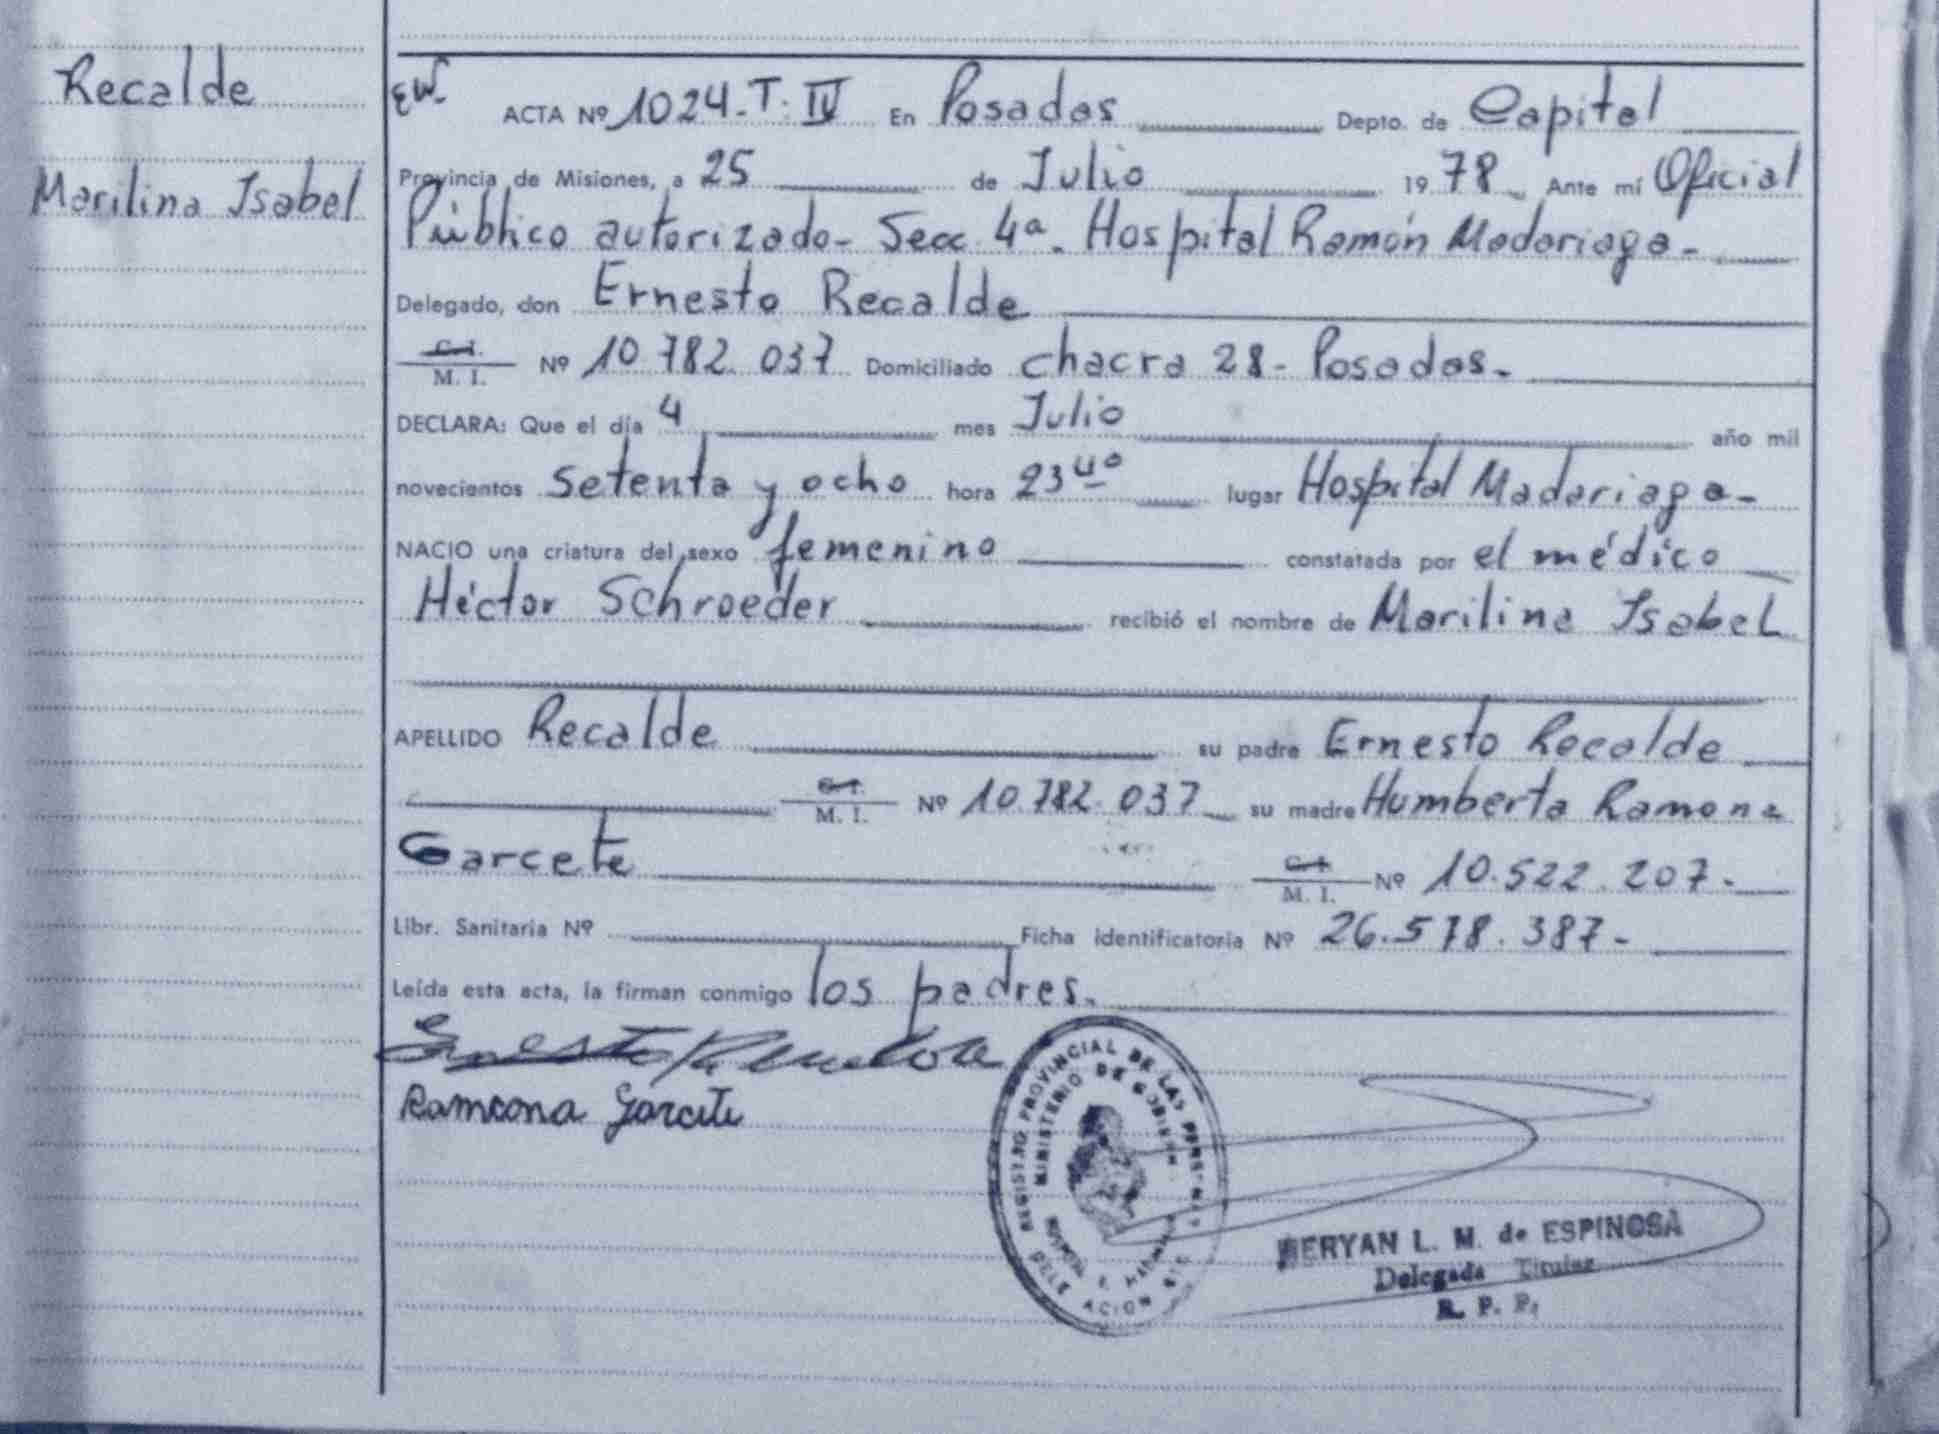 Recalde
Marilina Isabel
EW. ACTA Nº 1024-T. IV En Posadas Depto. de Capital
Provincia de Misiones, a 25 de Julio 1978 Ante mí Oficial
Público autorizado- Secc. 4ª. Hospital Ramón Madariaga-
Delegado, don Ernesto Recalde
C. I. M. I. Nº 10.782.037 Domiciliado chacra 28- Posadas.
DECLARA: Que el día 4 mes Julio año mil
novecientos setenta y ocho hora 23 40 lugar Hospital Madariaga-
NACIO una criatura del sexo femenino constatada por el médico
Héctor Schroeder recibió el nombre de Marilina Isabel
APELLIDO Recalde su padre Ernesto Recalde
C. I. M. I. Nº 10.782.037 su madre Humberta Ramona
Garcete C. I. M. I. Nº 10.522.207.-
Libr. Sanitaria Nº Ficha identificatoria Nº 26.578.387-
Leída esta acta, la firman conmigo los padres.
Ernesto Recalde
Ramona Garcete
REGISTRO PROVINCIAL DE LAS PERSONAS
MINISTERIO DE GOBIERNO
DELEGACION
L. M. de ESPINOSA
Delegada Titular
R. P. P.